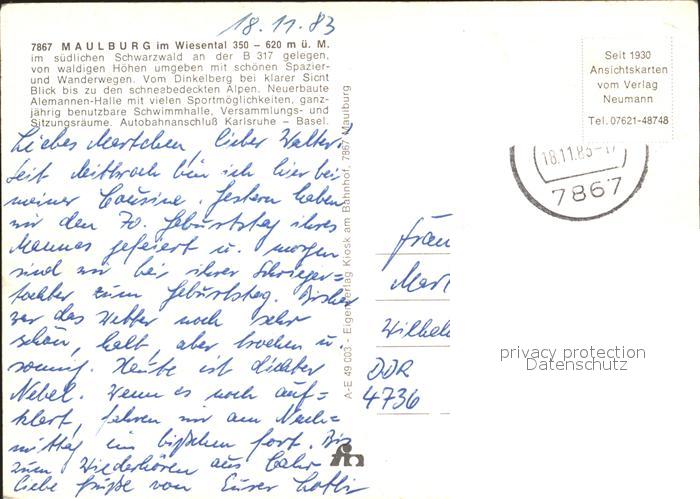 18.11.83
7867 MAULBURG im Wiesental 350 – 620 m ü. M.
im südlichen Schwarzwald an der B 317 gelegen,
von waldigen Höhen umgeben mit schönen Spazier-
und Wanderwegen. Vom Dinkelberg bei klarer Sicht
Blick bis zu den schneebedeckten Alpen. Neuerbaute
Alemannen-Halle mit vielen Sportmöglichkeiten, ganz-
jährig benutzbare Schwimmhalle, Versammlungs- und
Sitzungsräume. Autobahnanschluß Karlsruhe – Basel.
Liebes Martchen, lieber Walter!
Seit Mittwoch bin ich hier bei
meiner Cousine. Gestern haben
wir den 70. Geburtstag ihres
Mannes gefeiert u. morgen
sind wir bei ihrer Schwieger=
tochter zum Geburtstag. Bisher
war das Wetter noch sehr
schön, kalt, aber trocken u.
sonnig. Heute ist dichter
Nebel. Wenn es noch auf=
klart, fahren wir am Nach=
mittag ein bißchen fort. Bis
zum Wiederhören aus
liebe Grüße von Eurer
A-E 49 003 - Eigenverlag Kiosk am Bahnhof, 7867 Maulburg
Seit 1930
Ansichtskarten
vom Verlag
Neumann
Tel. 07621-48748
18.11.83-17
7867
Frau
Mar
Wilhel
DDR
4736
privacy protection
Datenschutz